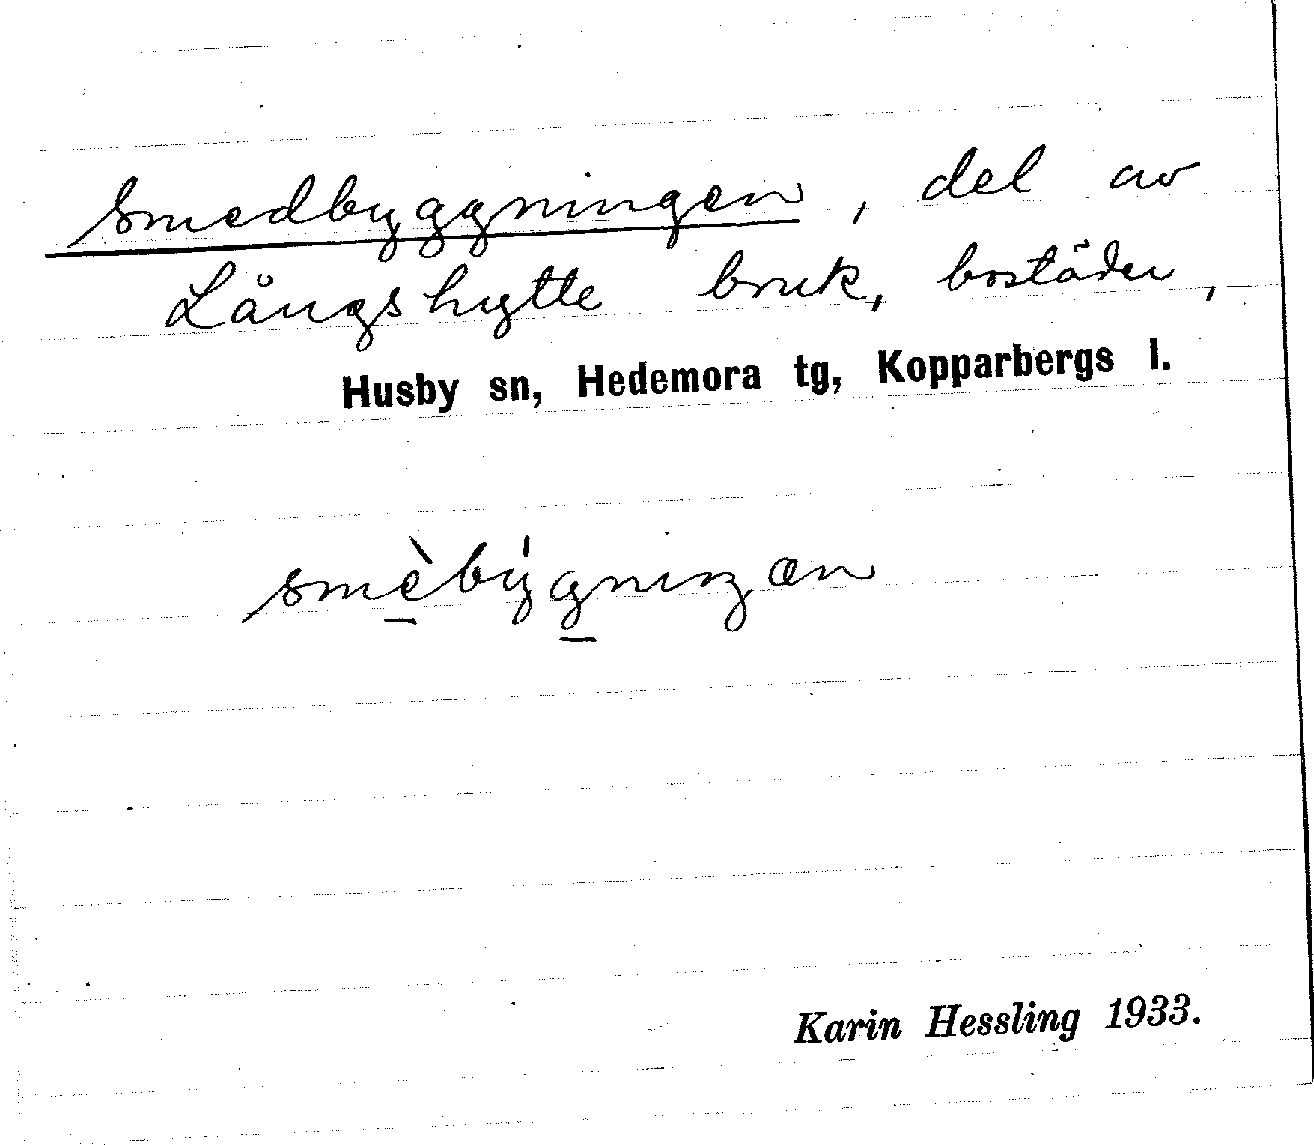 Smedbyggningen, del av
Långshytte bruk, bostäder,
Husby sn, Hedemora tg, Kopparbergs l.
smè̠býg̠niŋæn
Karin Hessling 1933.